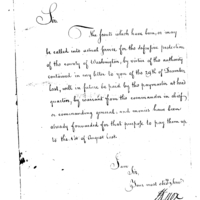 Sir
The scouts which have been, or may
be called into actual service for the defensive protection
of the county of Washington, by virtue of the authority
contained in my letter to you of the 29th of December
last, will in future be paid by the paymaster at head
quarters, by warrant from the commander in chief,
or commanding general, and monies have been
already forwarded for that purpose to pay them up
to the 1st of August last.
I am
Sir,
Your most obed. serv.
HKnox